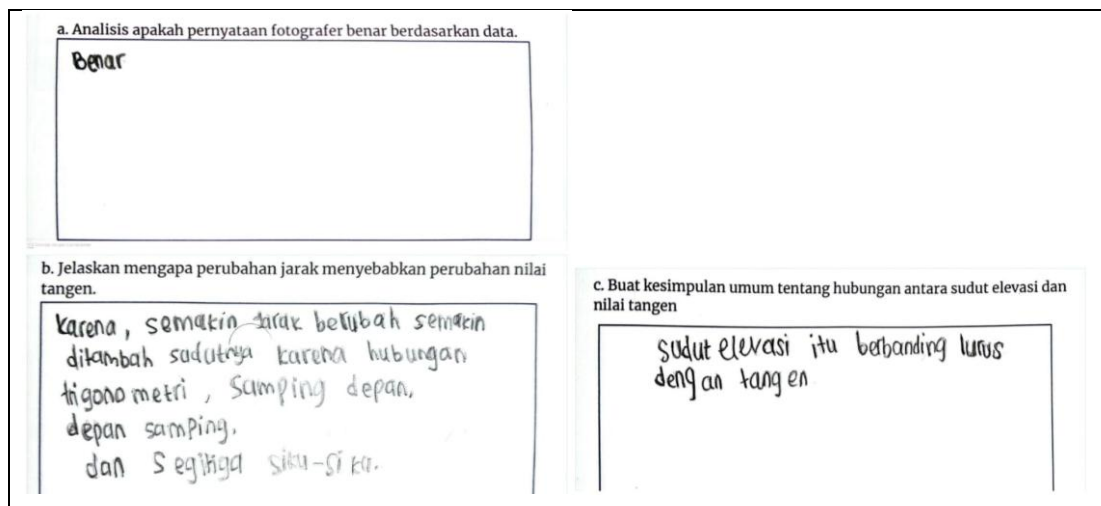 a. Analisis apakah pernyataan fotografer benar berdasarkan data.
Benar
b. Jelaskan mengapa perubahan jarak menyebabkan perubahan nilai
tangen.
Karena, semakin jarak berubah semakin
ditambah sudutnya karena hubungan
trigonometri, Samping depan,
depan samping.
dan Segitiga siku-siku.
c. Buat kesimpulan umum tentang hubungan antara sudut elevasi dan
nilai tangen
sudut elevasi itu berbanding lurus
dengan tangen